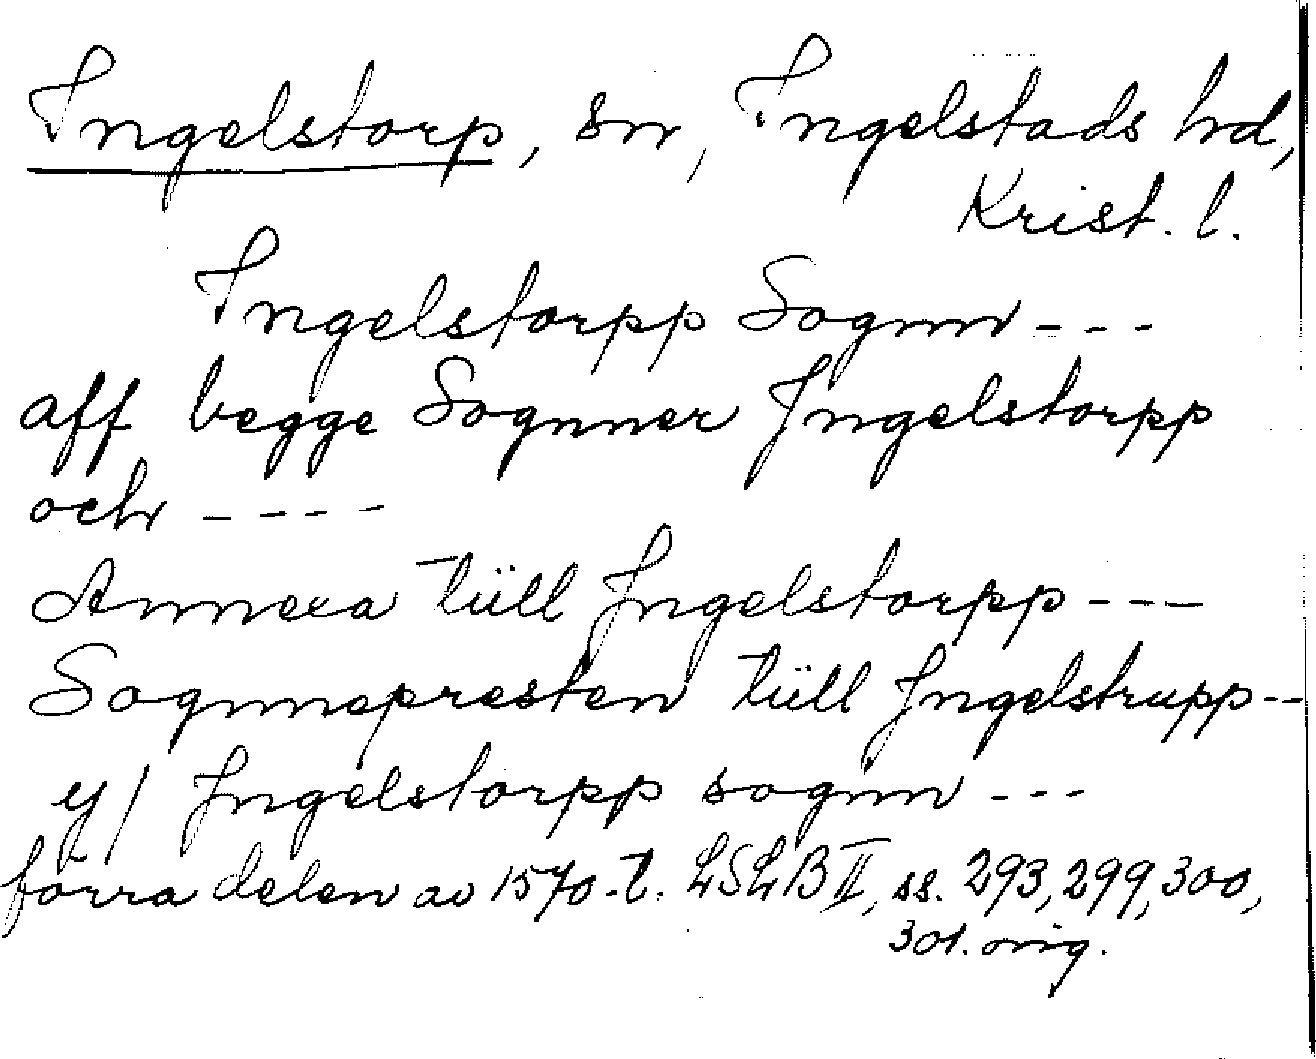 Ingelstorp, sn, Ingelstads hd,
Krist. l.
Ingelstorpp Sognn - - -
aff begge Sognner Ingelstorpp
och - - - -
Annexa tüll Ingelstorpp - - -
Sognnepresten tüll Ingelstrupp - -
y/ Ingelstorpp sognn - - -
förra delen av 1570-t. LSLB II, ss. 293, 299, 300,
301. orig.